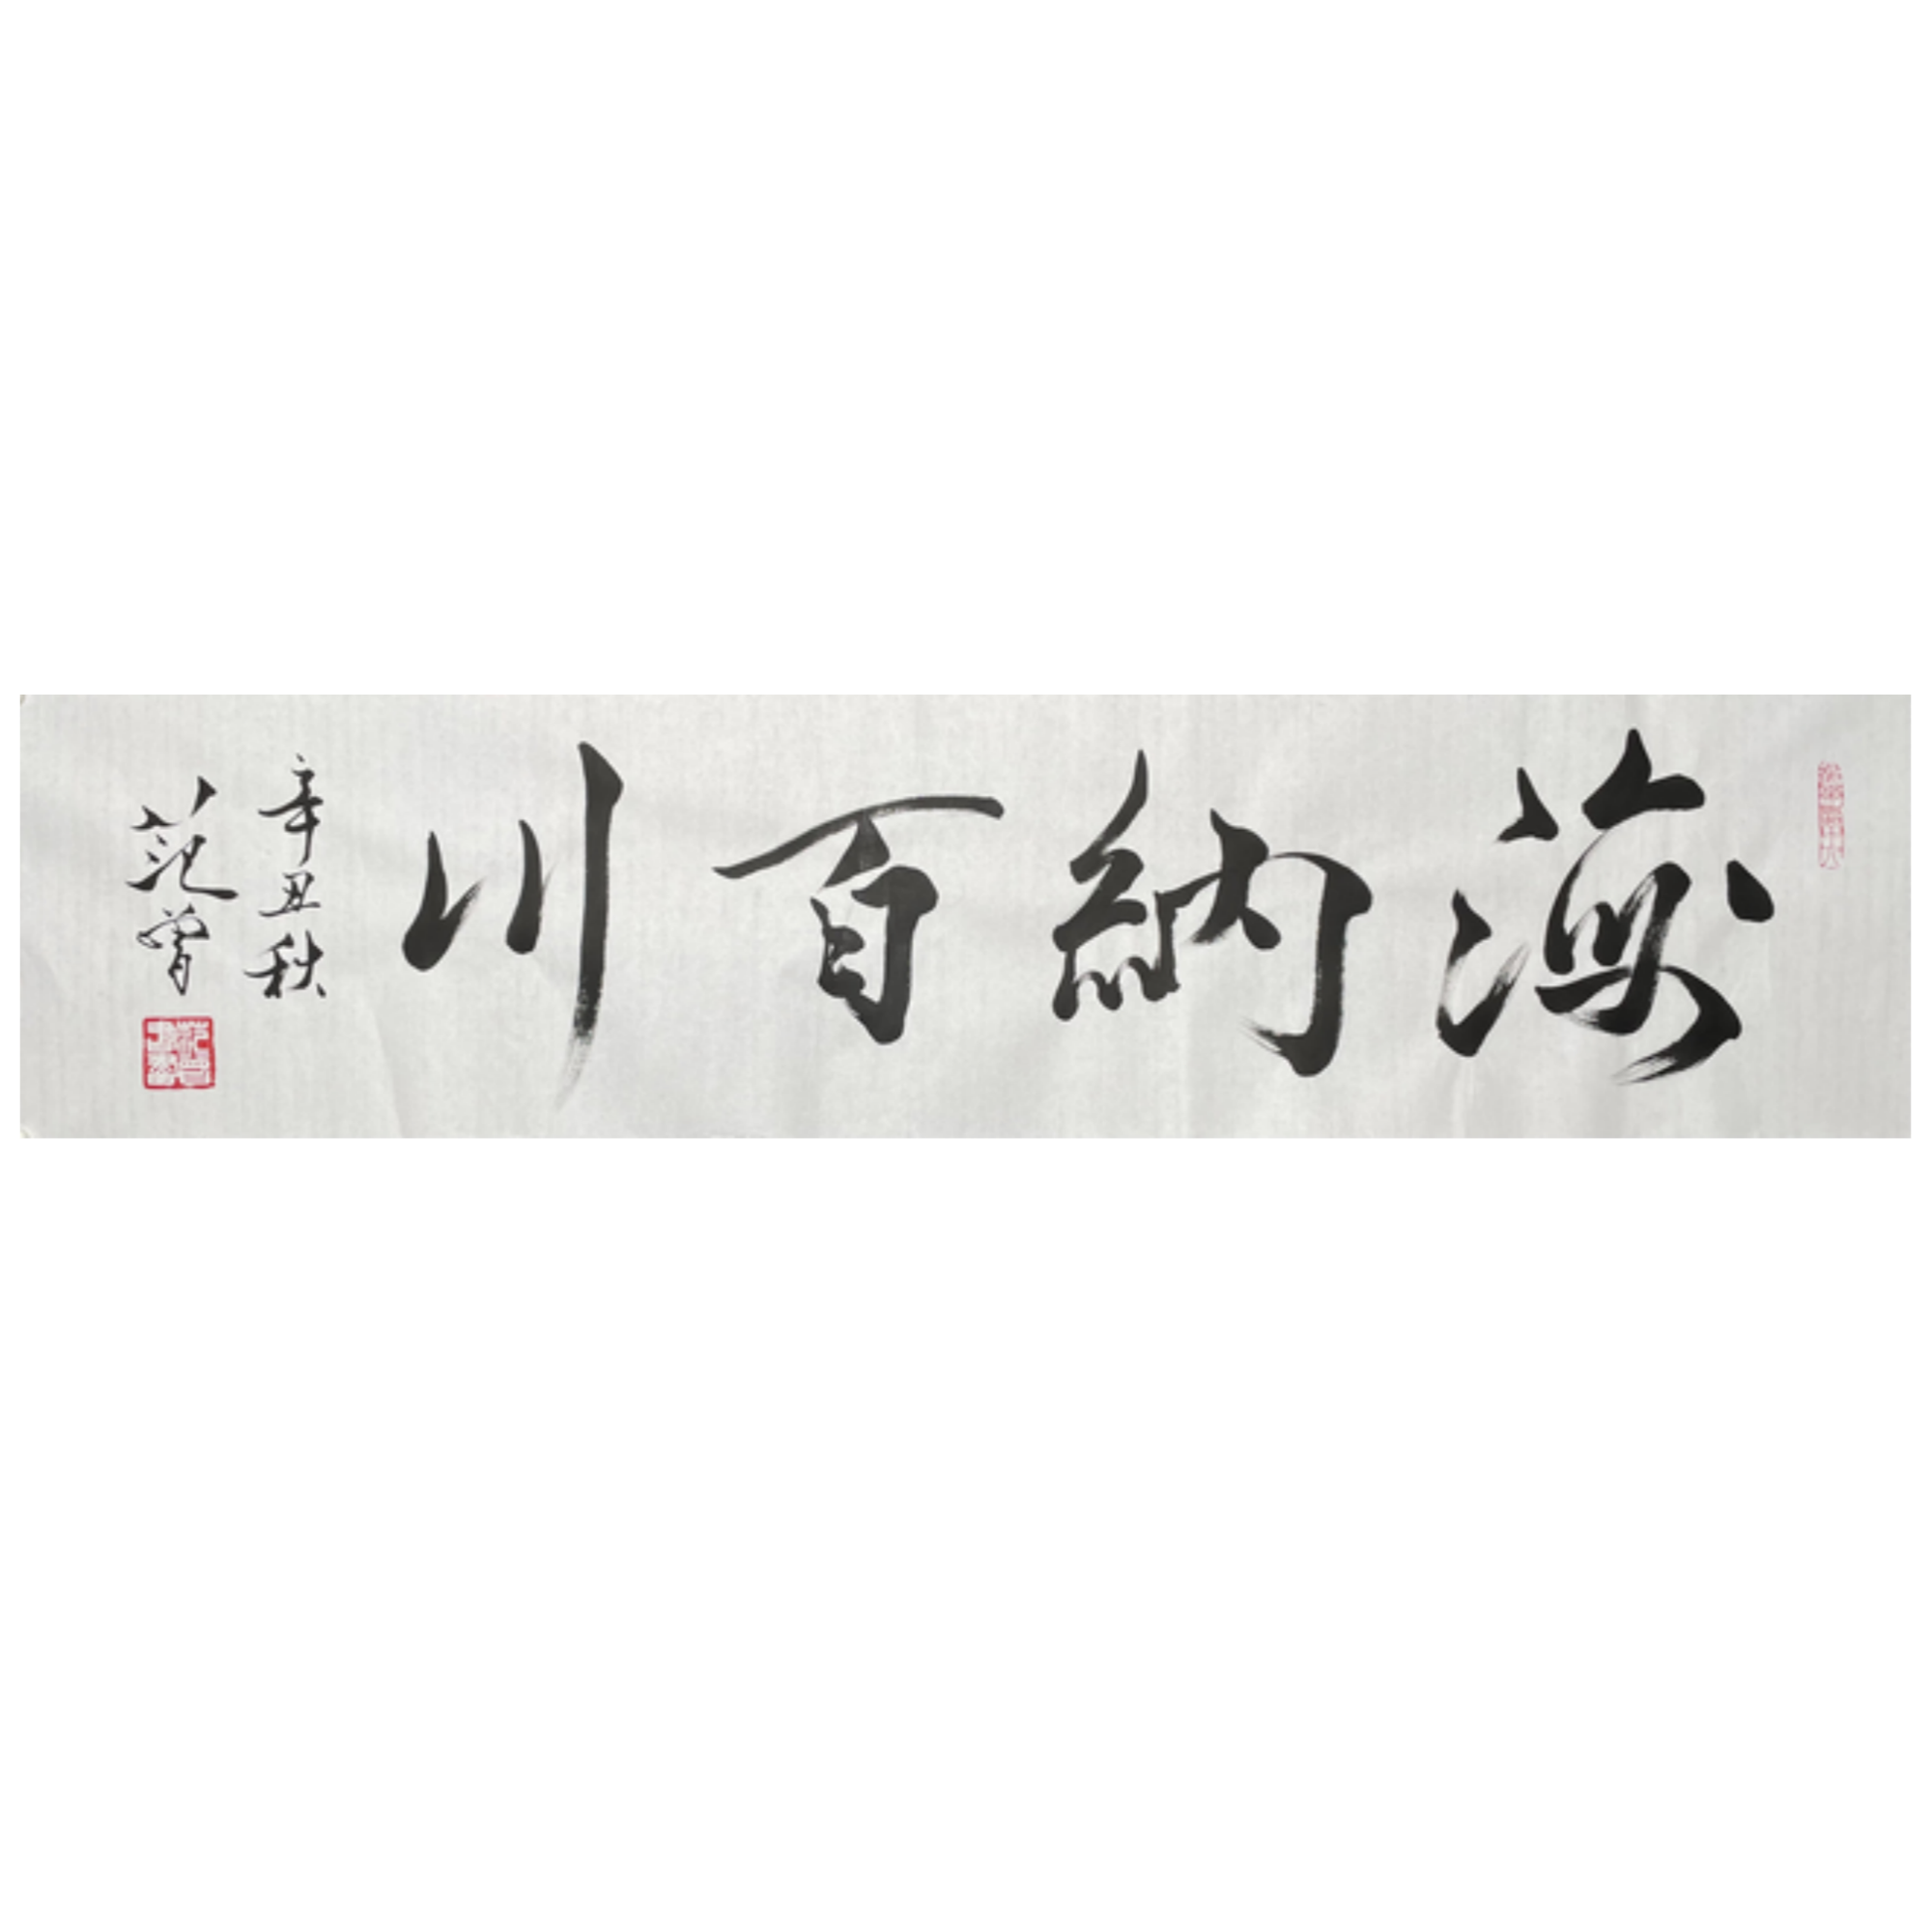 海納百川
辛丑秋
范曾